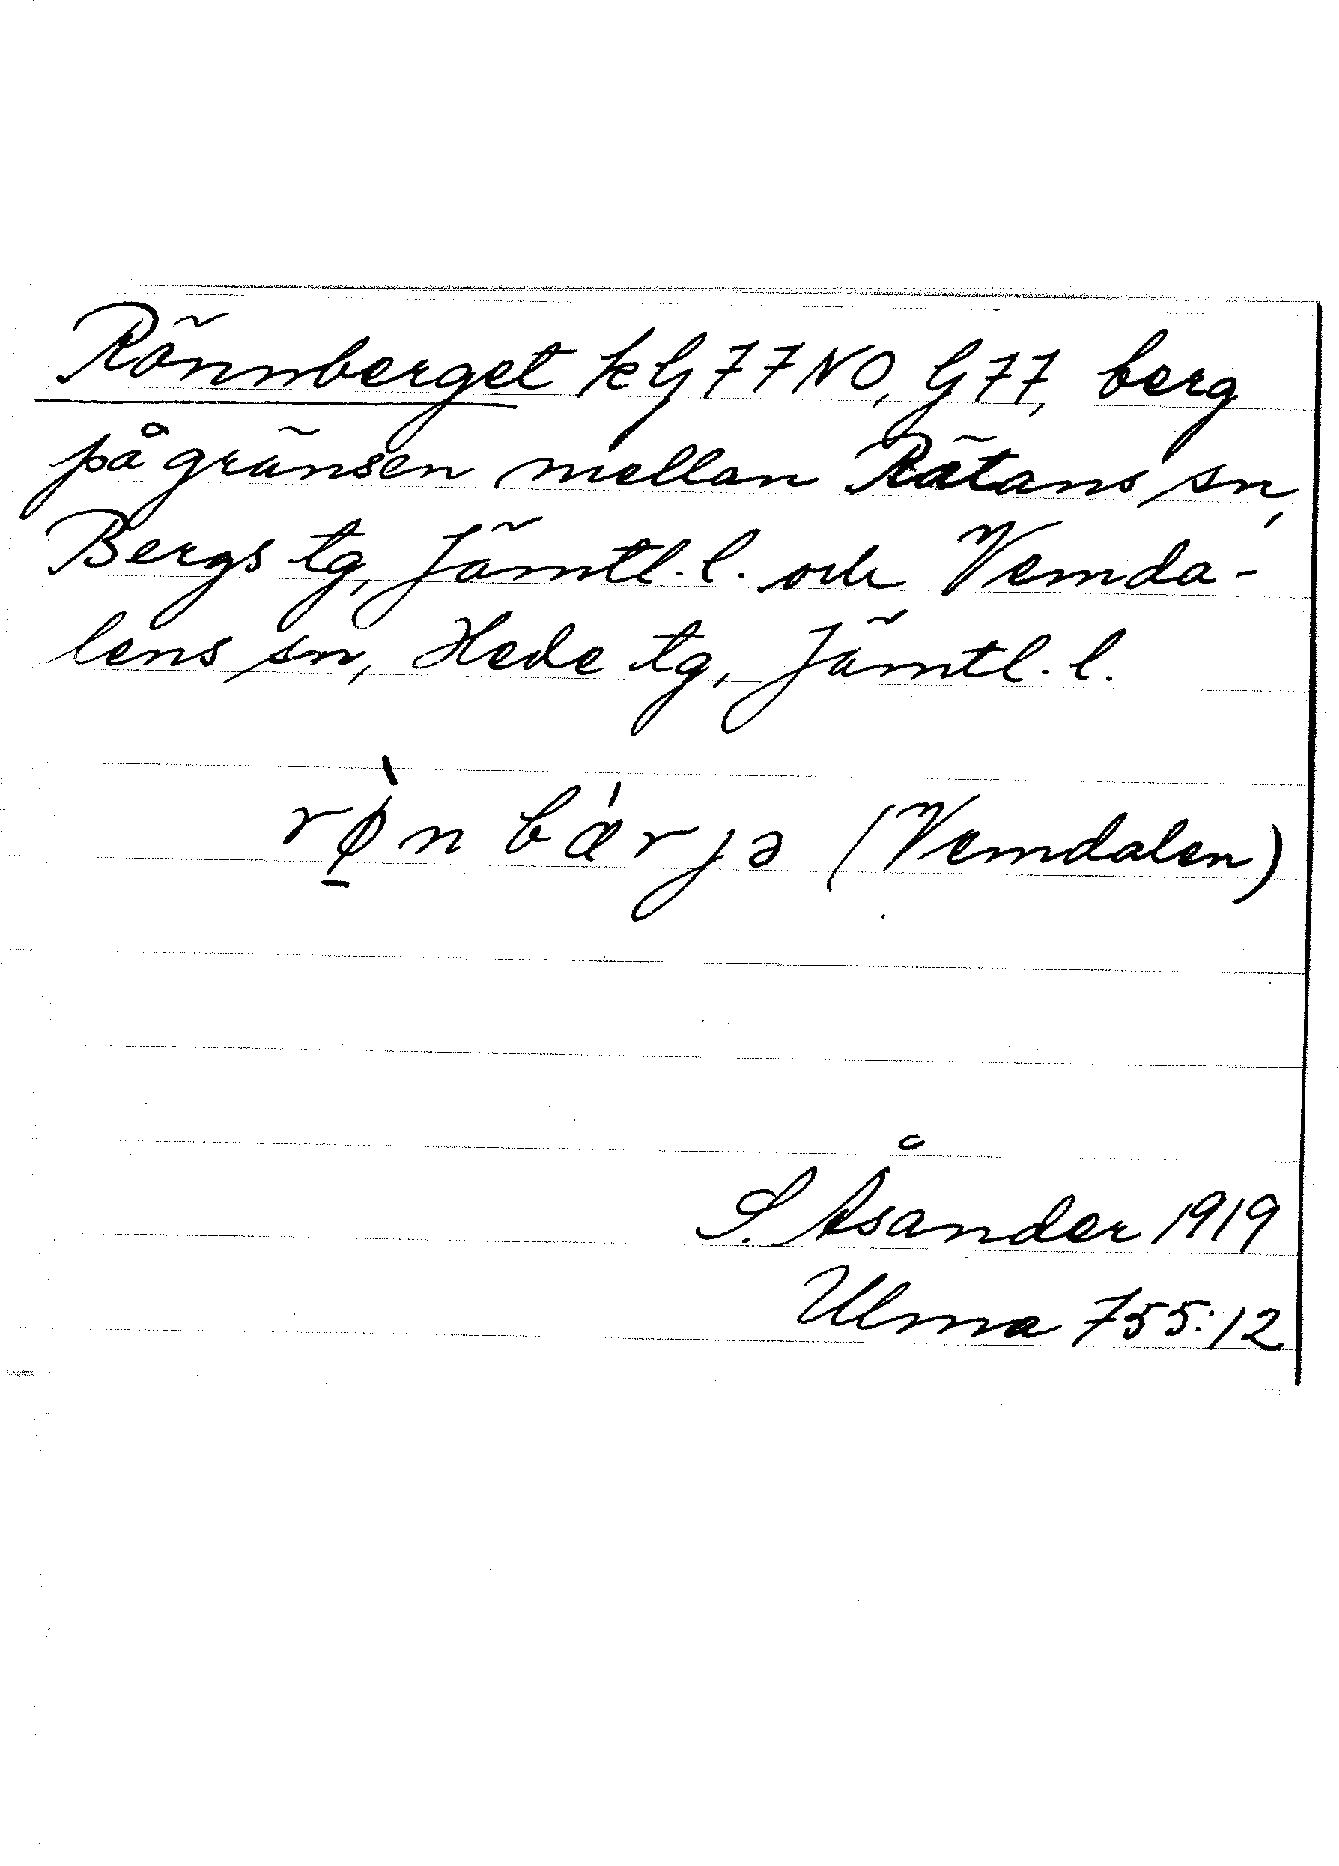 Rönnberget kG77NO, G77, berg
på gränsen mellan Rätans sn,
Bergs tg, Jämtl. l. och Vemda-
lens sn, Hede tg, Jämtl. l.
rø̱̀n bæ̀rjə (Vemdalen)
S. Åsander 1919
Ulma 755:12